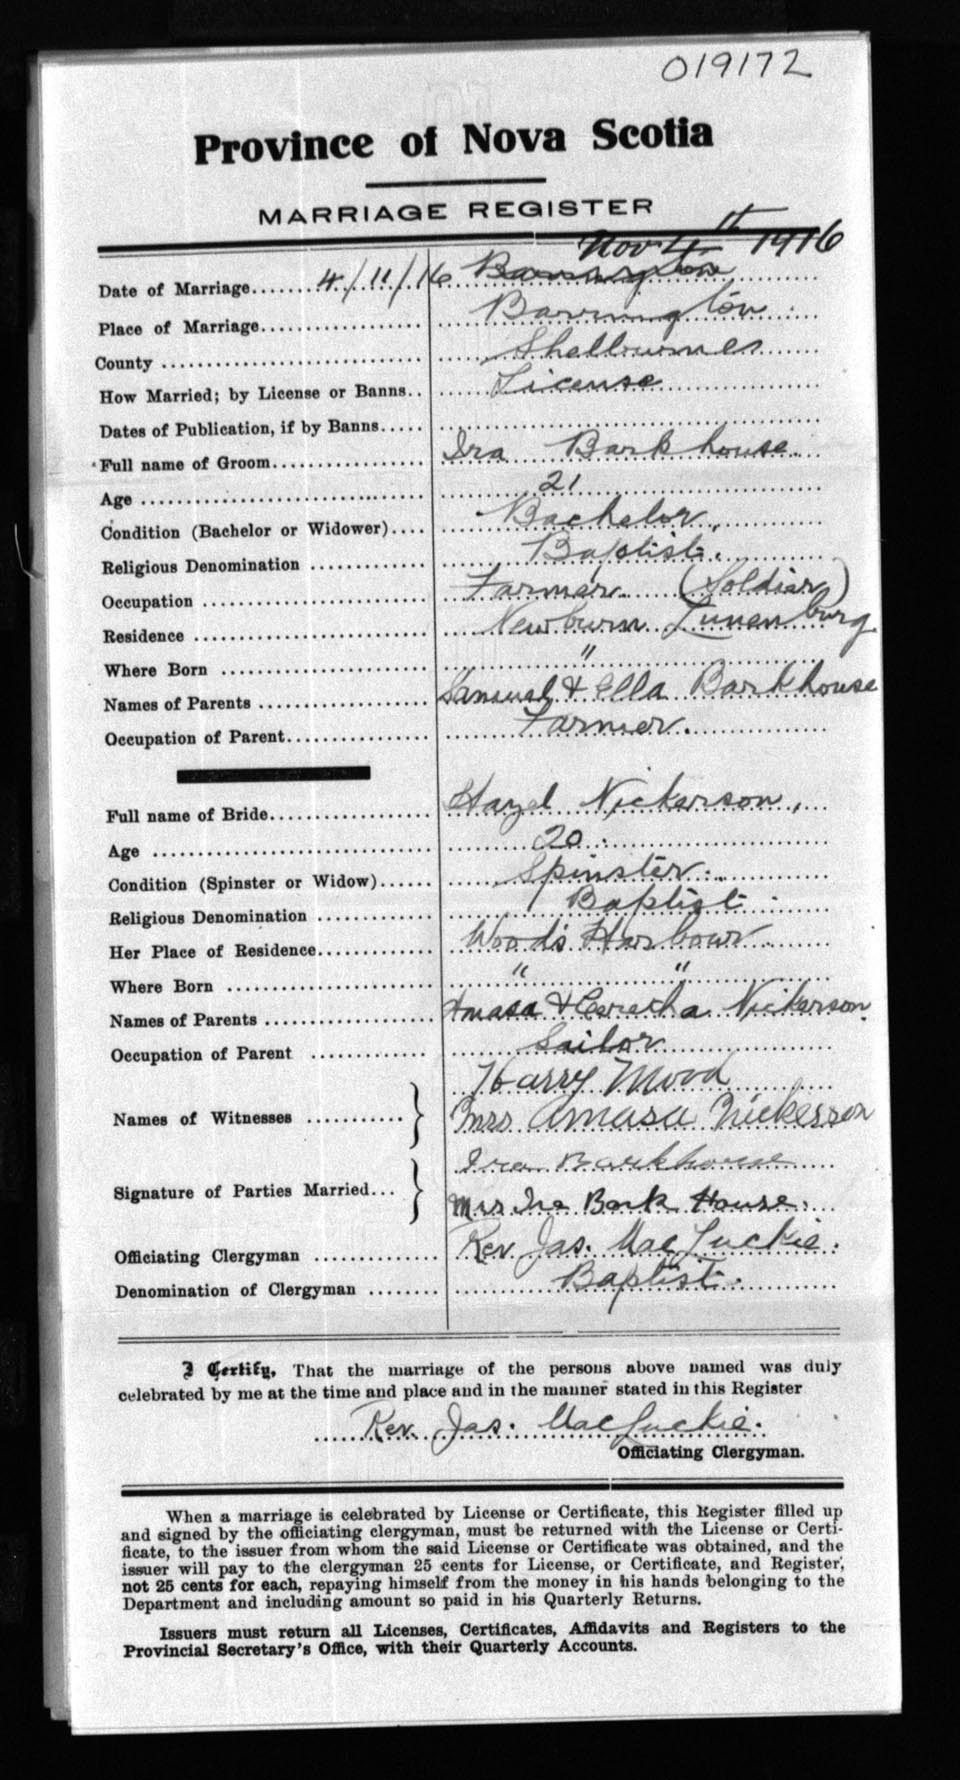 019172
Province of Nova Scotia
MARRIAGE REGISTER
Nov 4th 1916
Date of Marriage....... 4/11/16 Barrington
Place of Marriage.................. Barrington
County ............................ Shelburne
How Married; by License or Banns.. License
Dates of Publication, if by Banns.....
Full name of Groom................ Ira Barkhouse
Age .............................. 21
Condition (Bachelor or Widower).... Bachelor
Religious Denomination ............ Baptist.
Occupation ........................ Farmer (Soldier)
Residence ......................... Newburn Lunenburg
Where Born ...................... "
Names of Parents .................. Samuel & Ella Barkhouse
Occupation of Parent................ Farmer.
Full name of Bride.................. Hazel Nickerson,
Age ............................ 20.
Condition (Spinster or Widow)...... Spinster.
Religious Denomination ............ Baptist
Her Place of Residence............. Wood's Harbour
Where Born ...................... " "
Names of Parents .................. Amasa & Nickerson.
Occupation of Parent ............ Sailor
Harry Mood
Names of Witnesses ...........
Mrs Amasa Nickerson
Ira Barkhouse
Signature of Parties Married...
Mrs Ira Bark House.
Officiating Clergyman ............. Rev. Jas. MacLuckie.
Denomination of Clergyman ........ Baptist.
I Certify, That the marriage of the persons above named was duly
celebrated by me at the time and place and in the manner stated in this Register
Rev. Jas. MacLuckie.
Officiating Clergyman.
When a marriage is celebrated by License or Certificate, this Register filled up
and signed by the officiating clergyman, must be returned with the License or Certi-
ficate, to the issuer from whom the said License or Certificate was obtained, and the
issuer will pay to the clergyman 25 cents for License, or Certificate, and Register,
not 25 cents for each, repaying himself from the money in his hands belonging to the
Department and including amount so paid in his Quarterly Returns.
Issuers must return all Licenses, Certificates, Affidavits and Registers to the
Provincial Secretary's Office, with their Quarterly Accounts.